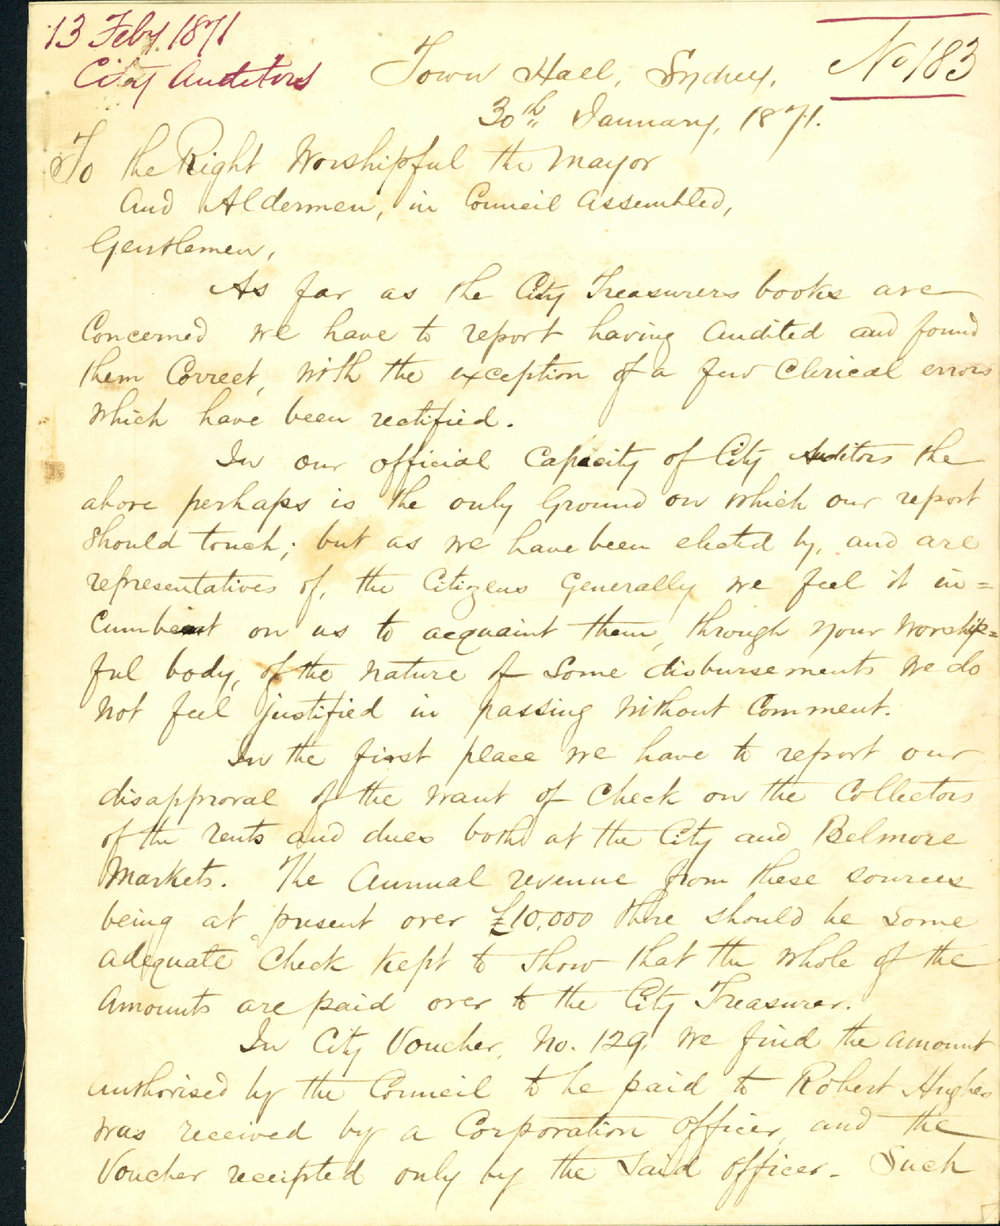 13 Feby. 1871
City Auditors
No 183
Town Hall, Sydney,
30th January, 1871.
To the Right Worshipful the Mayor
and Aldermen, in Council Assembled,
Gentlemen,
As far as the City Treasurers books are
Concerned we have to report having audited and found
them Correct, with the exception of a few Clerical errors
which have been rectified.
In our official Capacity of City Auditors the
above perhaps is the only Ground on which our report
should touch; but as we have been elected by, and are
representatives of, the Citizens Generally we feel it in=
cumbent on us to acquaint them, through your Worship=
ful body, of the nature of some disbursements we do
not feel justified in passing without Comment.
In the first place we have to report our
disapproval of the want of Check on the Collectors
of the rents and dues both at the City and Belmore
Markets. The Annual revenue from these sources
being at present over £10,000 there should be some
adequate Check kept to show that the whole of the
Amounts are paid over to the City Treasurer.
In City Voucher No. 129 we find the amount
authorised by the Council to be paid to Robert Hughes
was received by a Corporation Officer, and the
Voucher receipted only by the said officer. Such